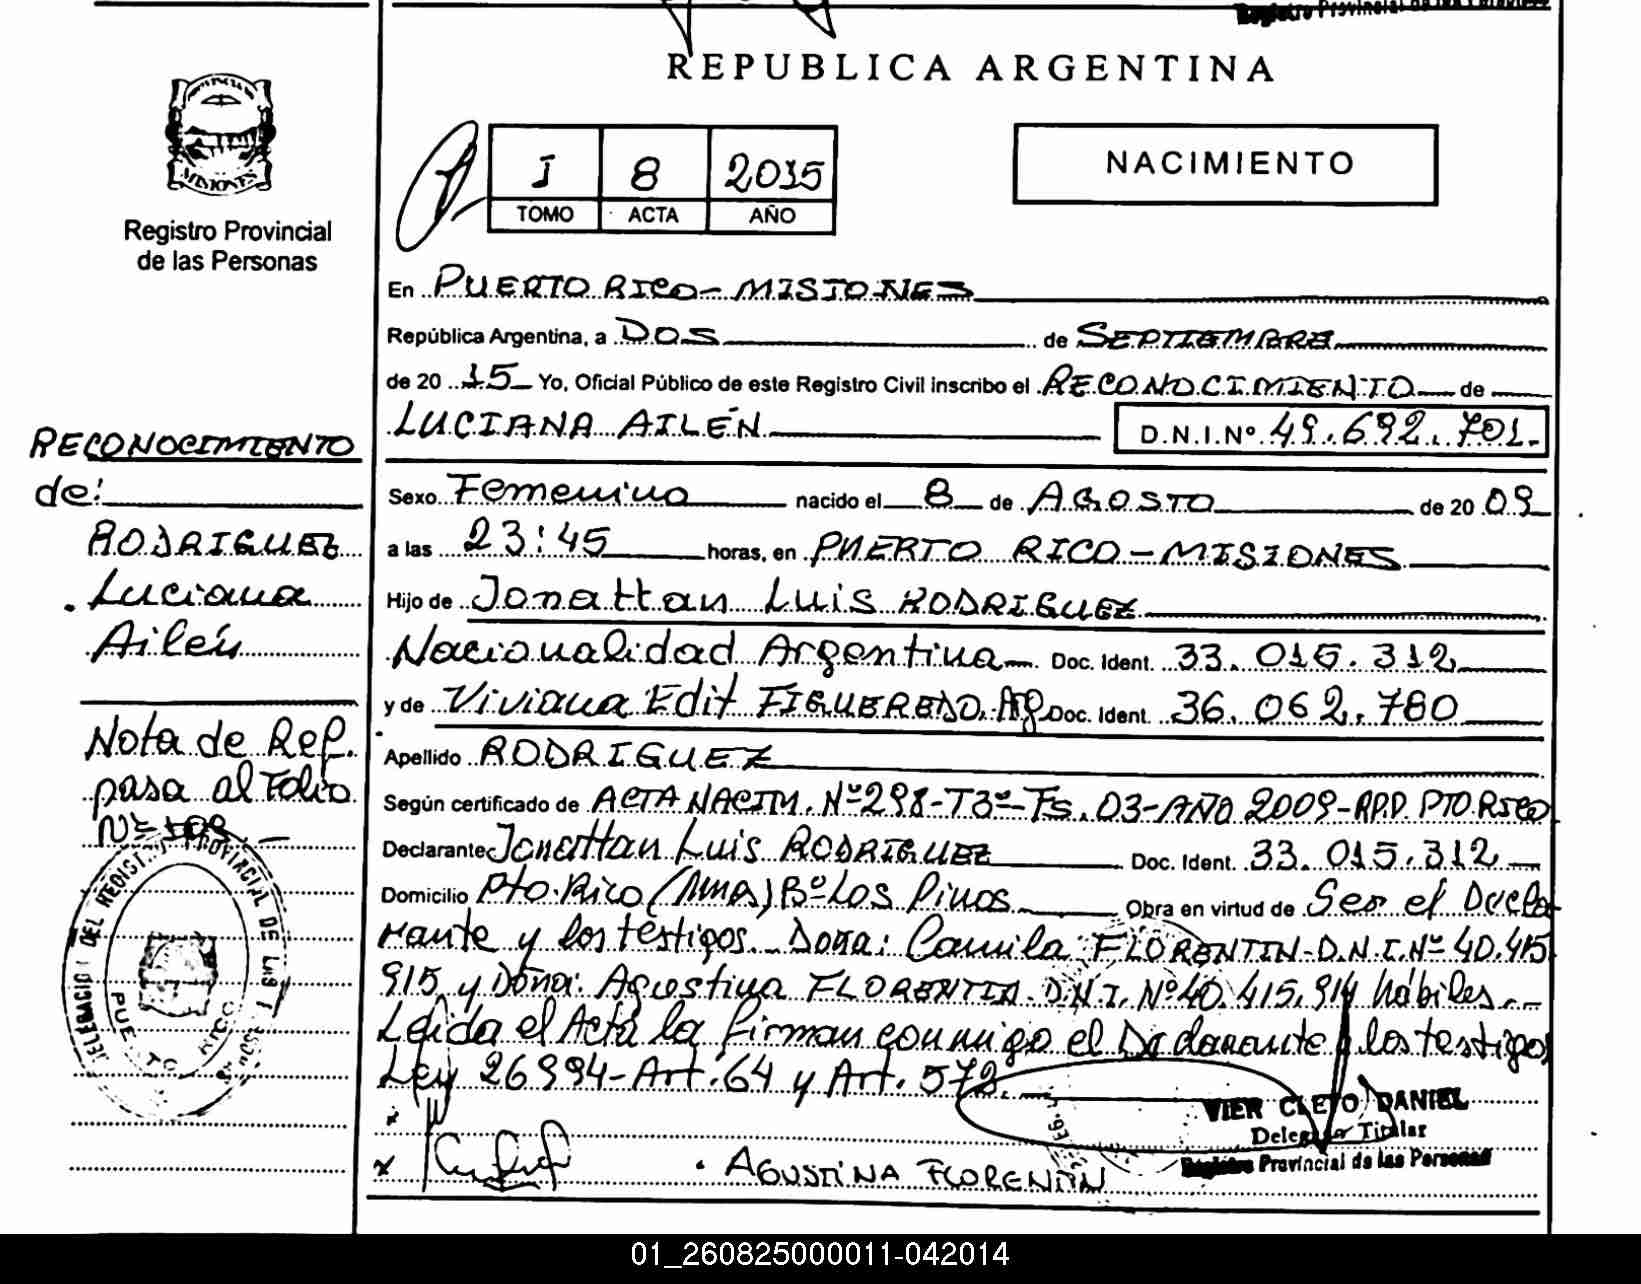 Registro Provincial de las Personas
REPUBLICA ARGENTINA
PROVINCIA DE
MISIONES
Registro Provincial
de las Personas
I 8 2015
TOMO ACTA AÑO
NACIMIENTO
En PUERTO RICO - MISIONES
República Argentina, a DOS de SEPTIEMBRE
de 20 15 Yo, Oficial Público de este Registro Civil inscribo el RECONOCIMIENTO de
LUCIANA AILÉN D.N.I.Nº 49.692.701.
Sexo Femenino nacido el 8 de AGOSTO de 20 09
a las 23:45 horas, en PUERTO RICO - MISIONES
Hijo de Jonattan Luis RODRIGUEZ
Nacionalidad Argentina Doc. Ident. 33.015.312
y de Viviana Edit FIGUEREDO Doc. Ident. 36.062.780
Apellido RODRIGUEZ
Según certificado de ACTA NACIM. Nº 298-T3º-Fs. 03-AÑO 2009-RP.P. PTO.RICO
Declarante Jonattan Luis RODRIGUEZ Doc. Ident. 33.015.312
Domicilio Pto. Rico (Mnes) Bº Los Pinos Obra en virtud de Ser el Decla
rante y los testigos. Doña: Camila FLORENTIN-D.N.I.Nº 40.415
915 y Doña: Agustina FLORENTIN. D.N.I. Nº 40.415.914 hábiles
Leída el Acta la firman conmigo el Declarante y los testigos
Ley 26994-Art. 64 y Art. 572.
AGUSTINA FLORENTIN
VIER CLETO DANIEL
Delegado Titular
Registro Provincial de las Personas
RECONOCIMIENTO
de:
RODRIGUEZ
Luciana
Ailén
Nota de Ref.
pasa al Folio
Nº 109
DELEGACION DEL REGISTRO PROVINCIAL DE LAS PERSONAS
PUERTO RICO
01_260825000011-042014